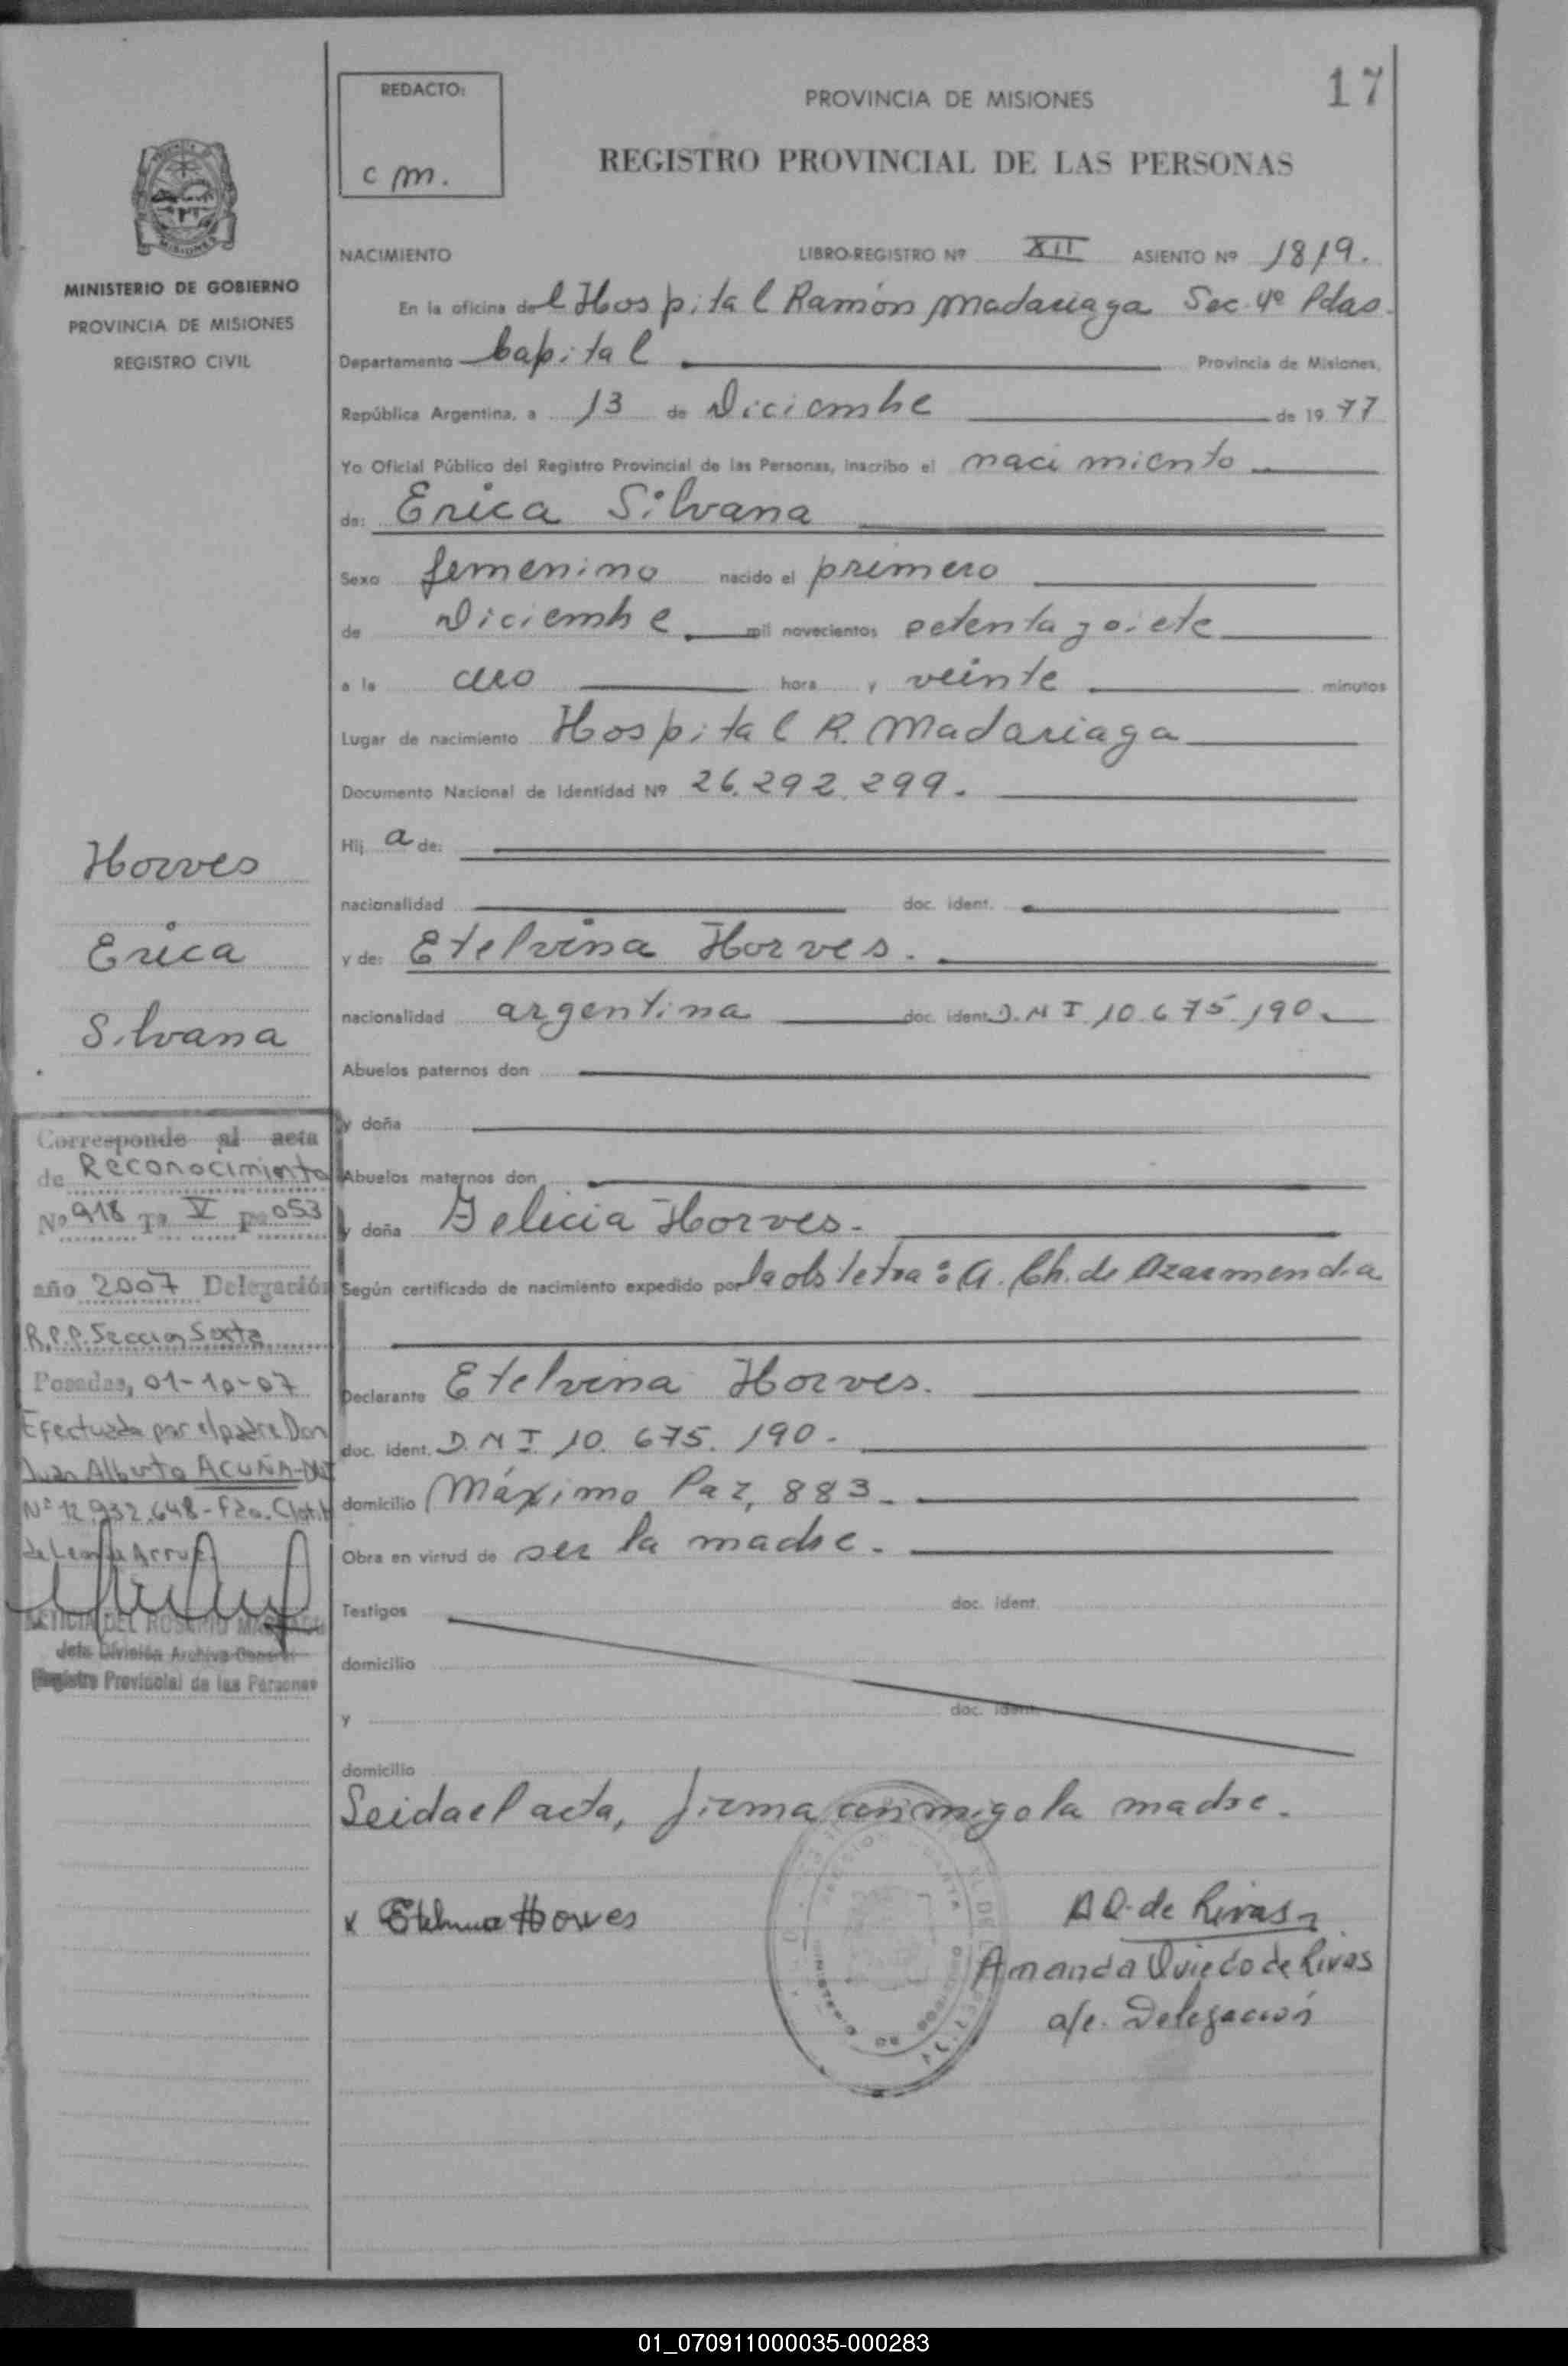 17
REDACTO:
c m.
PROVINCIA DE MISIONES
REGISTRO PROVINCIAL DE LAS PERSONAS
MISIONES
MINISTERIO DE GOBIERNO
PROVINCIA DE MISIONES
REGISTRO CIVIL
NACIMIENTO LIBRO-REGISTRO Nº XII ASIENTO Nº 1819.
En la oficina del Hospital Ramón Madariaga Sec. 4º Pdas.
Departamento Capital Provincia de Misiones,
República Argentina, a 13 de Diciembre de 1977
Yo Oficial Público del Registro Provincial de las Personas, inscribo el nacimiento
de: Erica Silvana
Sexo femenino nacido el primero
de Diciembre mil novecientos setenta y siete
a la cero hora y veinte minutos
Lugar de nacimiento Hospital R. Madariaga
Documento Nacional de Identidad Nº 26.292.299.
Hij a de:
nacionalidad doc. ident.
y de: Etelvina Horves.
nacionalidad argentina doc. ident. D.N I 10.675.190.
Abuelos paternos don
y doña
Abuelos maternos don
y doña Felicia Horves.
Según certificado de nacimiento expedido por la obstetra: A. Ch. de Azarmendia
Declarante Etelvina Horves.
doc. ident. D.N I 10.675.190.
domicilio Máximo Paz, 883.
Obra en virtud de ser la madre.
Testigos doc. ident.
domicilio
y doc. ident.
domicilio
Leida el acta, firma conmigo la madre.
x Etelvina Horves
A O. de Rivas
Amanda Oviedo de Rivas
a/c. Delegación
Horves
Erica
Silvana
Corresponde al acta
de Reconocimiento
Nº 918 Tº V Fº 053
año 2007 Delegación
R.P.P. Seccion Sexta
Posadas, 01-10-07
Efectuada por el padre Don
Juan Alberto ACUÑA-DNI
Nº 12.932.648-Fda. Clotil
de Leonde Arrua
LETICIA DEL ROSARIO
Jefa División Archivo General
Registro Provincial de las Personas
MINISTERIO DE GOBIERNO
01_070911000035-000283